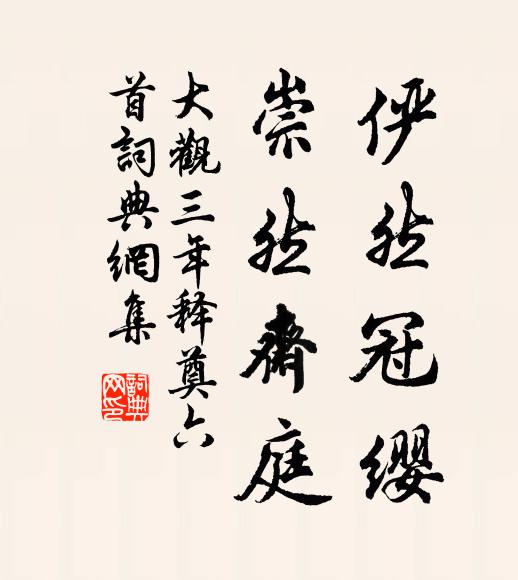 俨然冠缨
崇然齋庭
大觀三年释奠六
首詞典網集
詞典网印